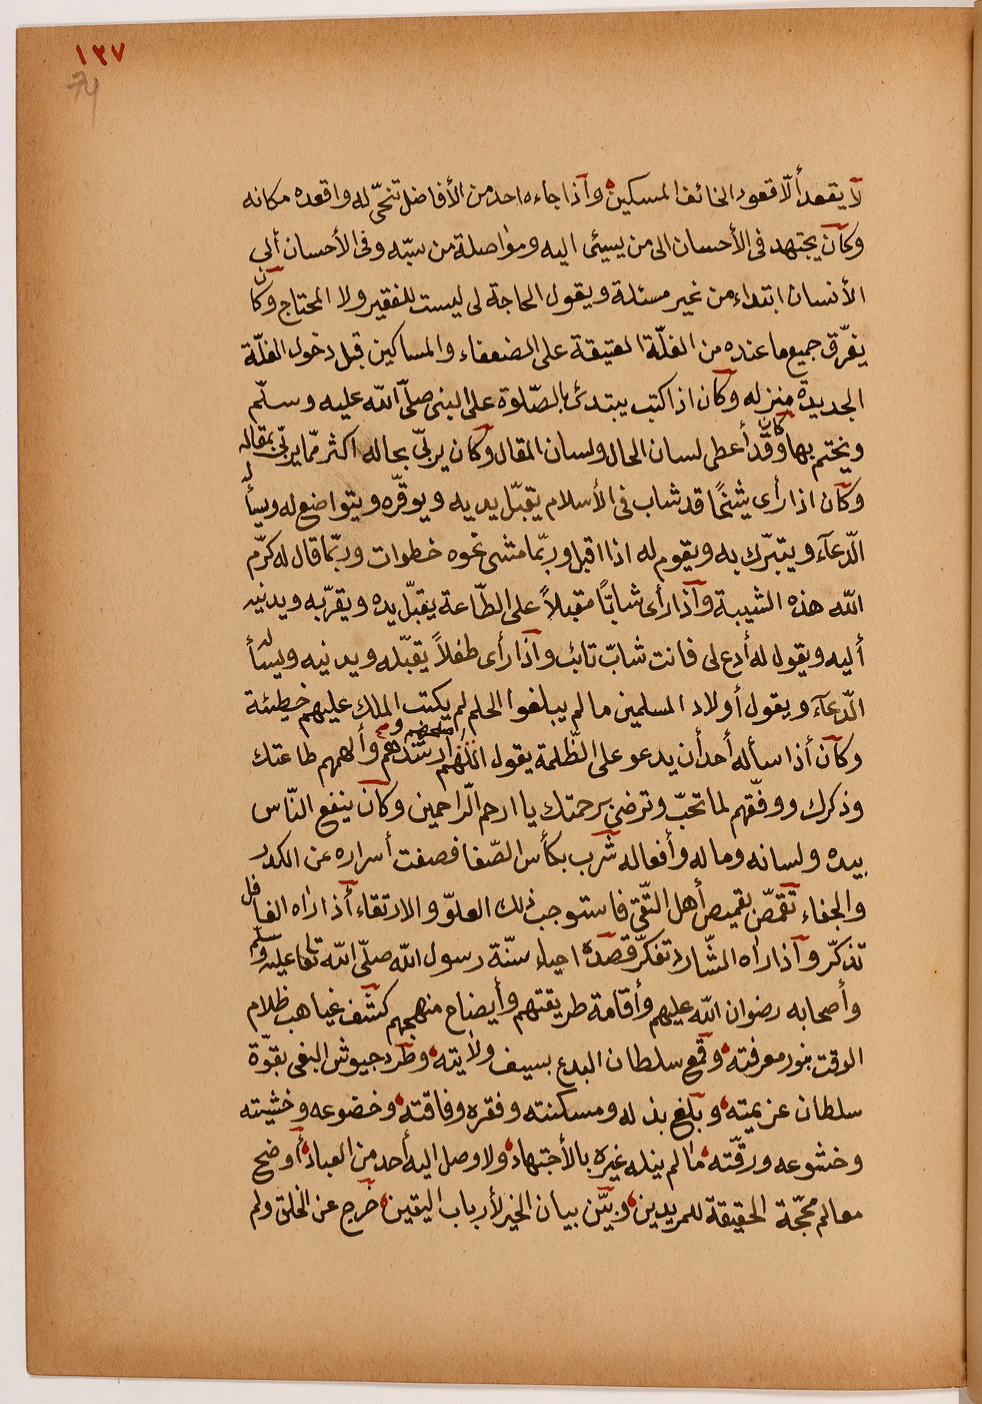 ١٢٧
74
لا يقعد ألّا قعود الخائف المسكين وآذا جاءه احد من الأفاضل تنحّى له واقعده مكانه
وكان يجتهد فى الأحسان الى من يسيئ اليه ومواصلة من سبّه وفى الأحسان ألى
الأنسان ابتداء من غير مسئلة ويقول الحاجة لى ليست للفقير ولا المحتاج وكان
يفرّق جميع ما عنده من الغلّة العتيقة على الضعفاء والمساكين قبل دخول الغلّة
الجديدة منزله وكان اذا كتب يبتدئ بالصّلوة على النبى صلّى الله عليه وسلّم
ويختم بها وكان قد أعطى لسان الحال ولسان المقال وكان يربّى بحاله اكثر ممّا يربّى بمقاله
وكان اذا رأى شيخًا قد شاب فى الأسلام يقبّل يديه ويوقّره ويتواضع له ويسأله
الدّعآء ويتبرّك به ويقوم له اذا اقبل وربّما مشى نحوه خطوات وربّما قال له كرّم
الله هذه الشيبة وآذا رأى شابًّا مقبلاً على الطّاعة يقبّل يده ويقرّبه ويدنيه
أليه ويقول له أدع لى فانت شابّ تائب وآذا رأى طفلاً يقبّله ويدنيه ويسأله
الدّعآء ويقول أولاد المسلمين ما لم يبلغوا الحلم لم يكتب الملك عليهم خطيئة
وكان أذا سأله أحد أن يدعو على الظّلمة يقول اللّهم اصلحهم وارشدهم وألهمهم طاعتك
وذكرك ووفّقهم لما تحبّ وترضى برحمتك يا ارحم الرّاحمين وكان ينفع النّاس
بيده ولسانه وماله وأفعاله شرب بكأس الصّفا فصفت أسراره عن الكدر
والجفاء تقمّص بقميص أهل التّقى فاستوجب ذلك العلوّ والارتقاء أذا راه الغافل
تذكّر وآذا راه الشّارد تفكّر قصده احياء سنّة رسول الله صلّى الله تعا عليه وسلّم
وأصحابه رضوان الله عليهم وأقامة طريقتهم وأيضاح منهجهم كشف غياهب ظلام
الوقت بنور معرفته وقمع سلطان البدع بسيف ولايته وطرد جيوش البغى بقوّة
سلطان عزيمته وبلغ بذله ومسكنته وفقره وفاقته وخضوعه وخشيته
وخشوعه ورقّته ما لم ينله غيره بالأجتهاد ولا وصل اليه أحد من العباد أوضح
معالم محجّة الحقيقة للمريدين وبيّن بيان الخير لأرباب اليقين خرج عن الخلق ولم